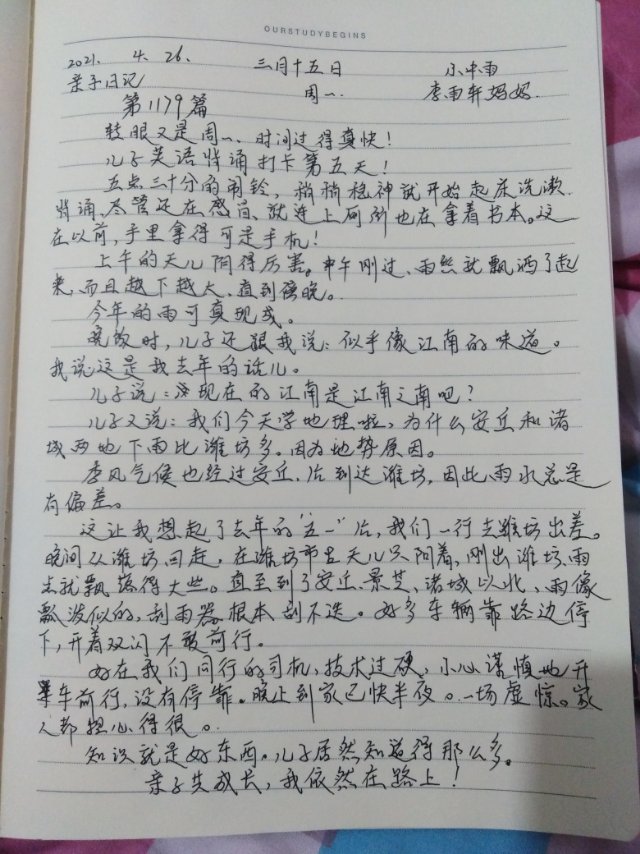 OURSTUDYBEGINS
2021. 4. 26. 三月十五日 小中雨
亲子日记 周一. 李雨轩妈妈.
第1179篇
转眼又是周一、时间过得真快!
儿子英语背诵打卡第五天!
五点三十分的闹铃,稍稍稳神就开始起床洗漱
背诵、尽管还在感冒、就连上厕所也在拿着书本。这
在以前,手里拿得可是手机!
上午的天儿阴得厉害。中午刚过、雨然就飘洒了起
来,而且越下越大、直到傍晚。
今年的雨可真现成。
晚饭时,儿子还跟我说:似乎像江南的味道。
我说这是我去年的话儿。
儿子说:现在的江南是江南之南吧?
儿子又说:我们今天学地理啦,为什么安丘和诸
城两地下雨比潍坊多。因为地势原因。
季风气候也经过安丘,后到达潍坊,因此雨水总是
有偏差。
这让我想起了去年的“五一”后,我们一行去潍坊出差。
晚间从潍坊回赶,在潍坊市里天儿只阴着,刚出潍坊、雨
点就飘落得大些。直至到了安丘、景芝、诸城以北,雨像
瓢泼似的,刮雨器根本刮不迭。好多车辆靠路边停
下,开着双闪不敢前行。
好在我们同行的司机,技术过硬,小心谨慎地开
车前行,没有停靠。晚上到家已快半夜。一场虚惊。家
人都担心得很。
知识就是好东西。儿子居然知道得那么多。
亲子共成长,我依然在路上!